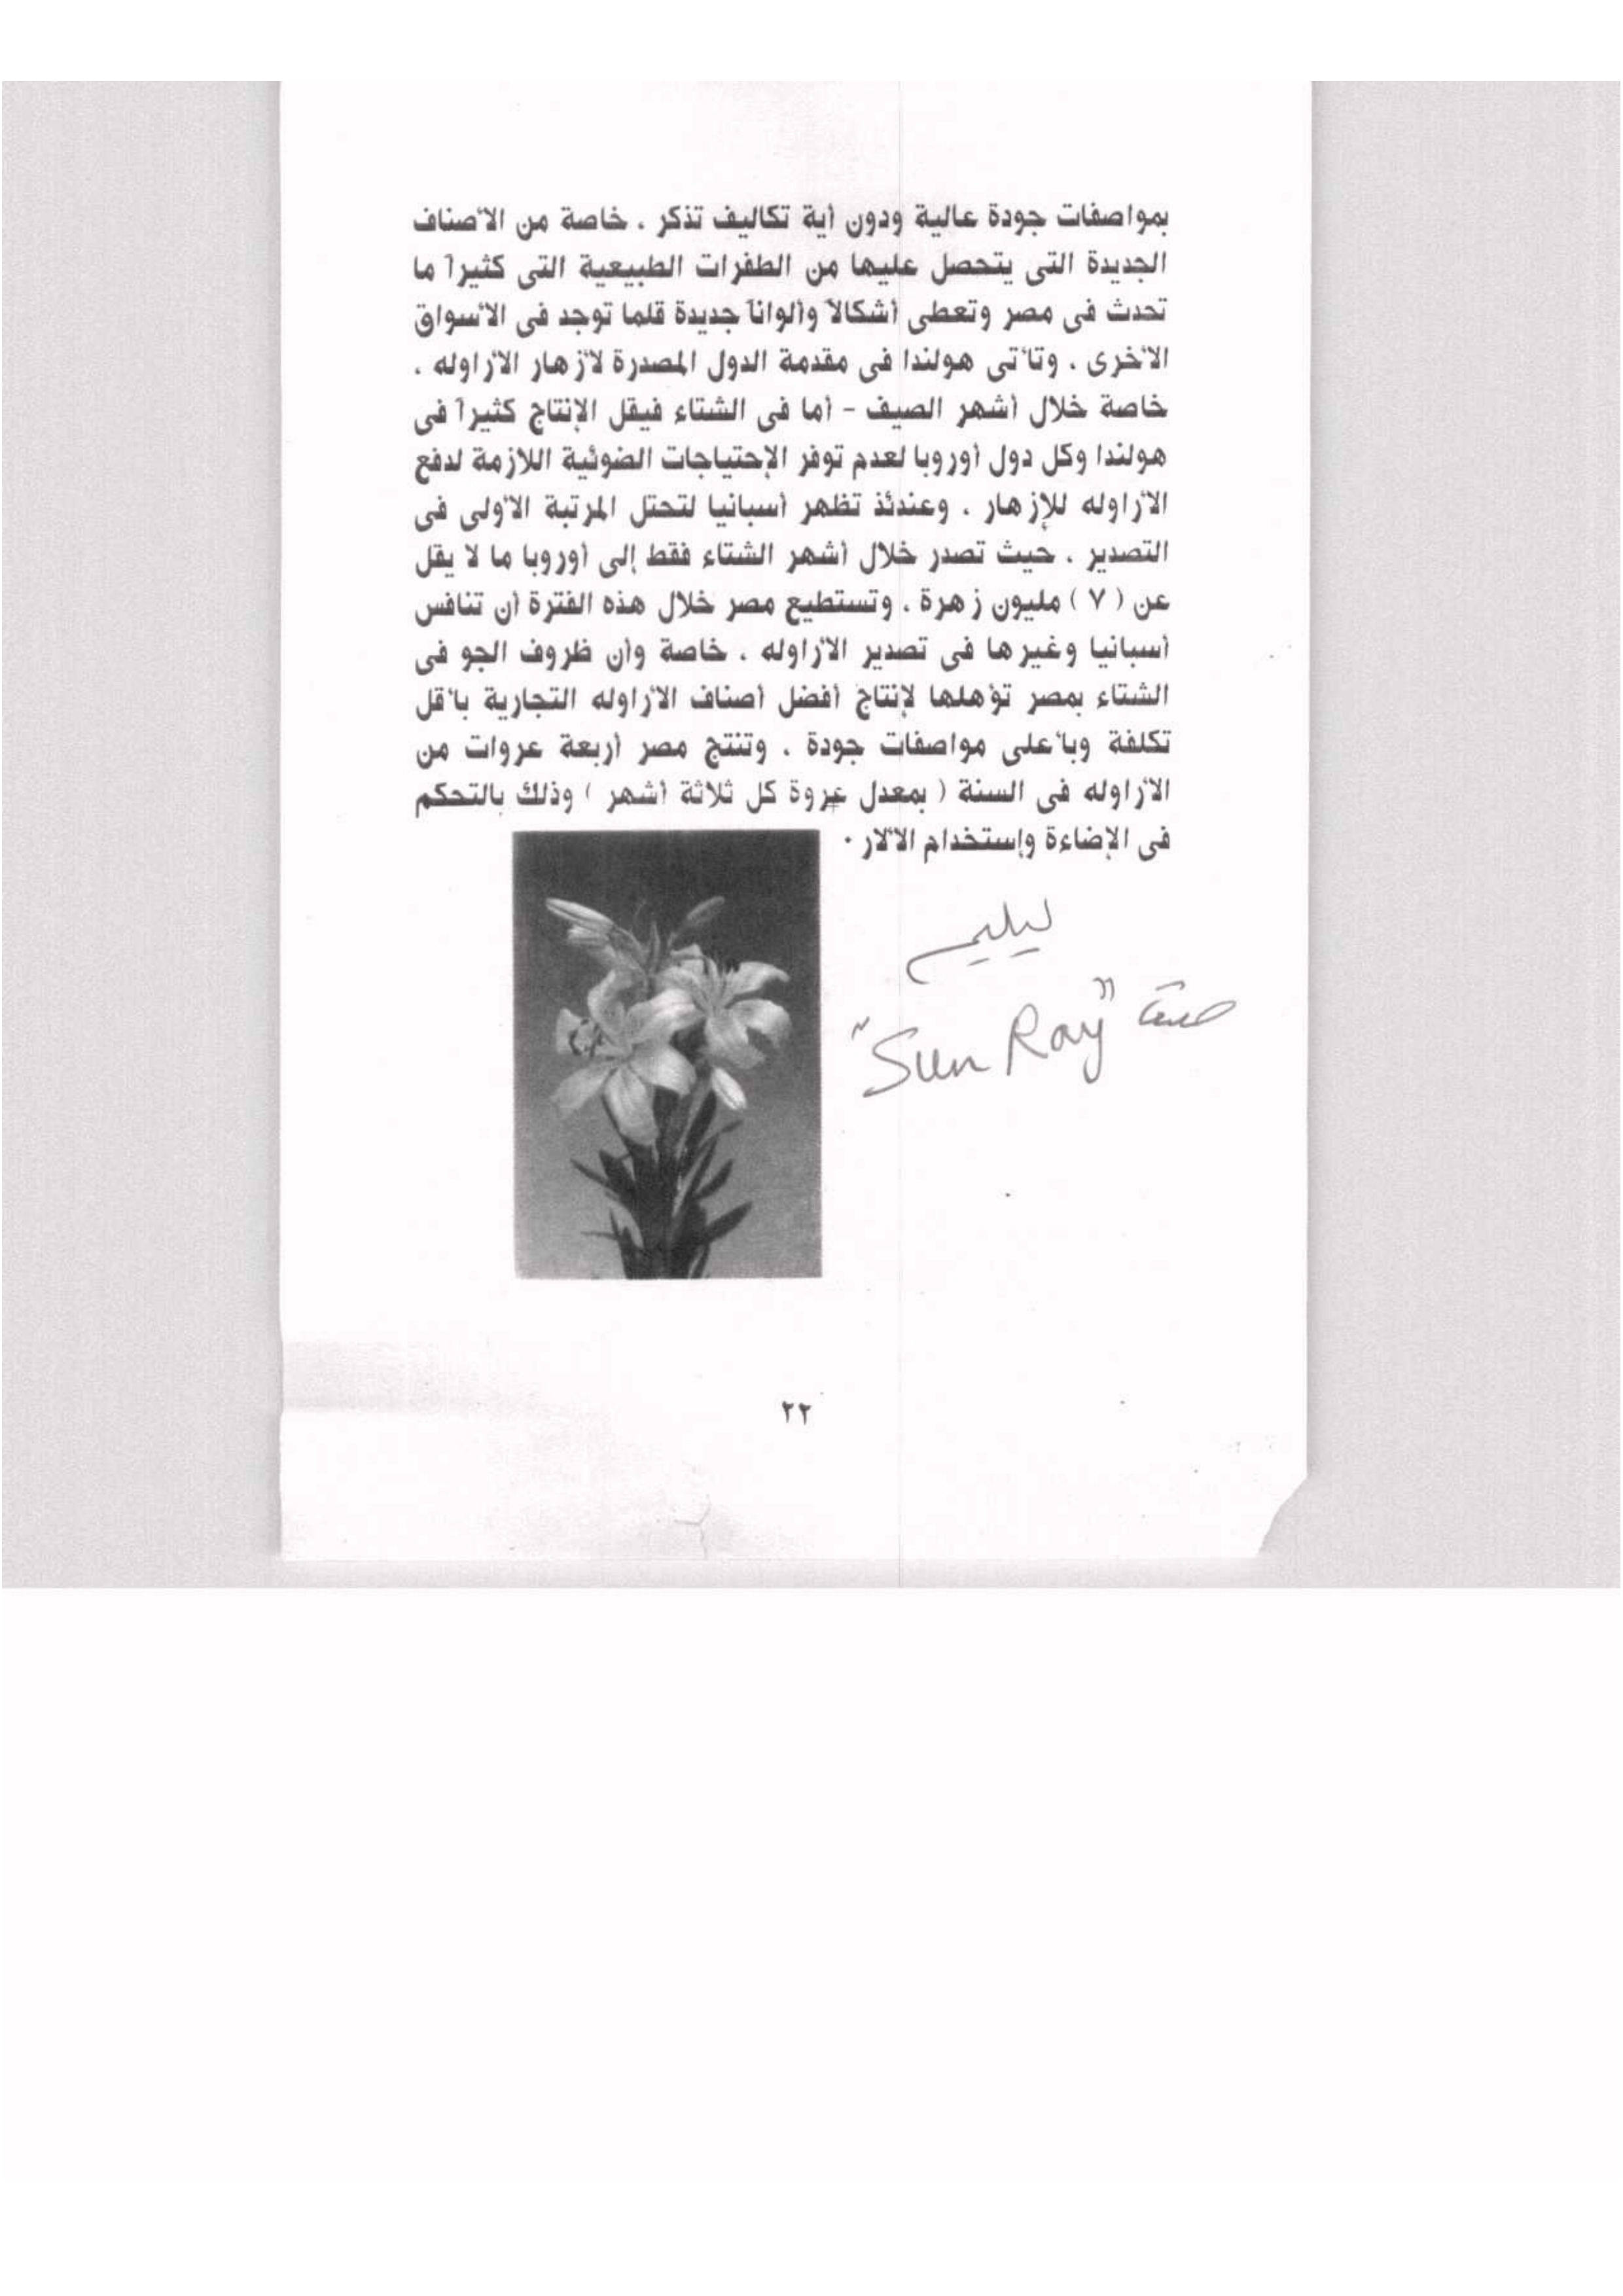 بمواصفات جودة عالية ودون أية تكاليف تذكر ، خاصة من الأصناف
الجديدة التى يتحصل عليها من الطفرات الطبيعية التى كثيراً ما
تحدث فى مصر وتعطى أشكالاً وألواناً جديدة قلما توجد فى الأسواق
الأخرى . وتأتى هولندا فى مقدمة الدول المصدرة لأزهار الأراوله ،
خاصة خلال أشهر الصيف - أما فى الشتاء فيقل الإنتاج كثيراً فى
هولندا وكل دول أوروبا لعدم توفر الإحتياجات الضوئية اللازمة لدفع
الأراوله للإزهار ، وعندئذ تظهر أسبانيا لتحتل المرتبة الأولى فى
التصدير ، حيث تصدر خلال أشهر الشتاء فقط إلى أوروبا ما لا يقل
عن ( ٧ ) مليون زهرة ، وتستطيع مصر خلال هذه الفترة أن تنافس
أسبانيا وغيرها فى تصدير الأراوله ، خاصة وأن ظروف الجو فى
الشتاء بمصر تؤهلها لإنتاج أفضل أصناف الأراوله التجارية بأقل
تكلفة وبأعلى مواصفات جودة ، وتنتج مصر أربعة عروات من
الأراوله فى السنة ( بمعدل عروة كل ثلاثة أشهر ) وذلك بالتحكم
فى الإضاءة وإستخدام الألار .
ليليم
صنف "Sun Ray"
٢٢